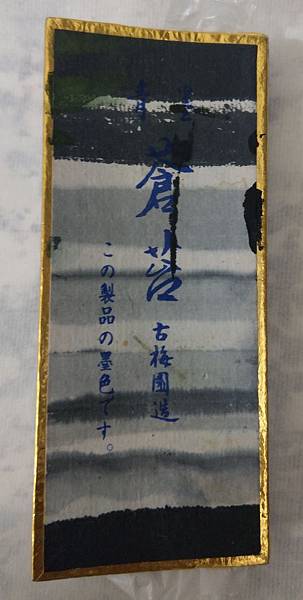 青墨
蒼苔
古梅園造
この製品の墨色です。